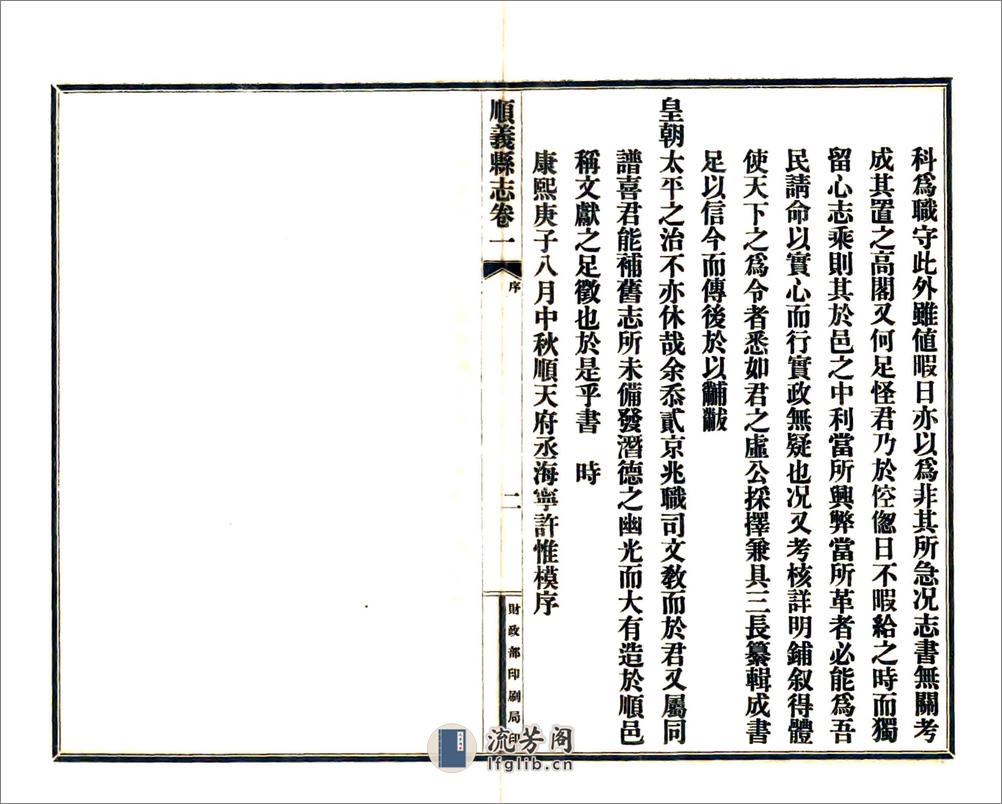 科爲職守此外雖值暇日亦以爲非其所急况志書無關考
成其置之高閣又何足怪君乃於倥偬日不暇給之時而獨
留心志乘則其於邑之中利當所興弊當所革者必能爲吾
民請命以實心而行實政無疑也况又考核詳明鋪叙得體
使天下之爲令者悉如君之虛公採擇兼具三長纂輯成書
足以信今而傳後於以黼黻
皇朝太平之治不亦休哉余忝貳京兆職司文教而於君又屬同
譜喜君能補舊志所未備發潛德之幽光而大有造於順邑
稱文獻之足徵也於是乎書　時
康熙庚子八月中秋順天府丞海寧許惟模序
順義縣志卷一
序
二
財政部印刷局印
流芳阁
lfglib.cn